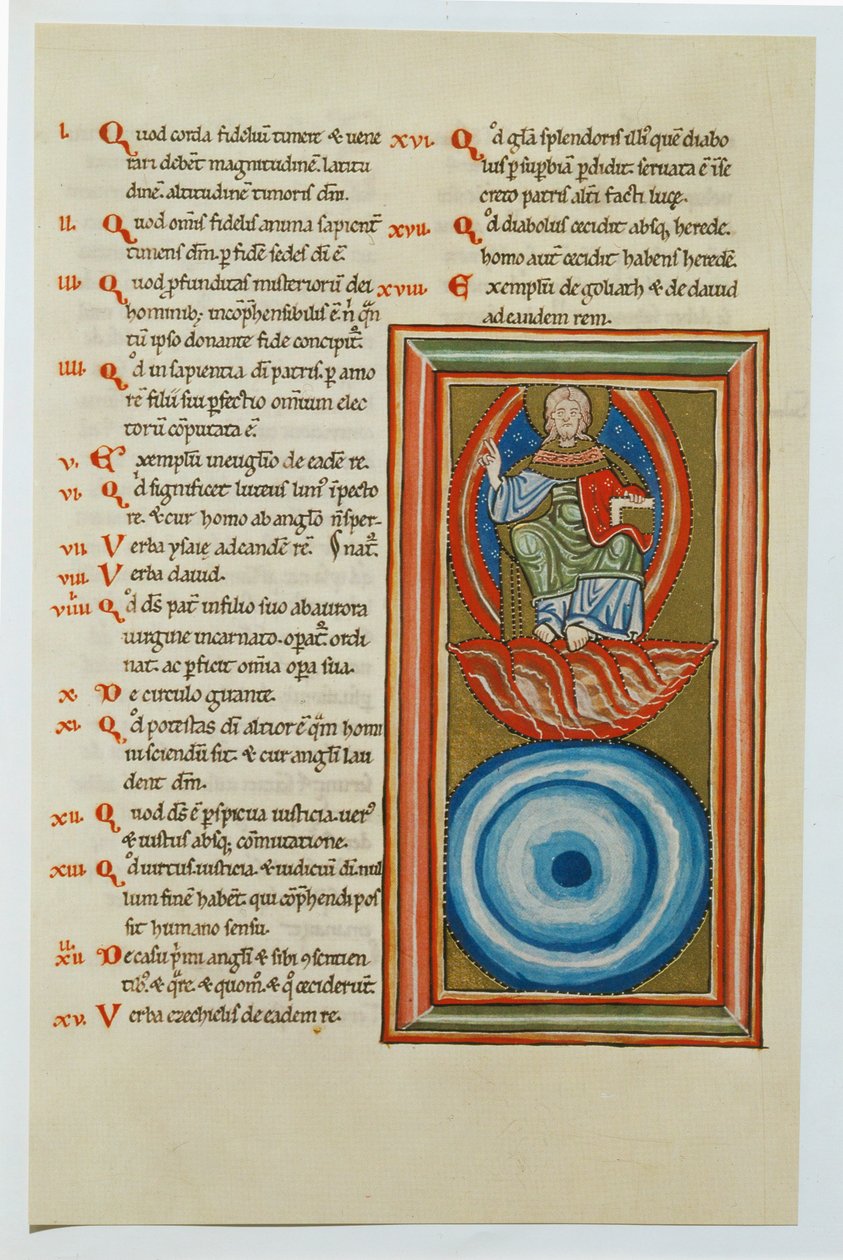 I. Quod corda fidelium timere & vene
rari debēt magnitudinē. latitu
dinē. altitudinē timoris dm̄.
II. Quod omīs fidelis anima sapient̄
timens dm̄. p fidē sedes dī ē.
III. Quod pfunditas misteriorū dei
hominib; incōp̄hensibilis ē. n̄
tū ipso donante fide concipit᷑.
IIII. Qd in sapientia dī patris. p amo
rē filii sui pfectio omnium elec
torū cōputata ē.
V. Exemplū in euglio de eadē re.
VI. Qd significet luteus lim᷒ ī pecto
re. & cur homo ab anglo n̄ sper-
VII. Verba ysaię ad eandē rē. nat᷑.
VIII. Verba david.
VIIII Qd ds̄ pat᷑ in filio suo ab aurora
virgine incarnato. opat᷑ ordi
nat. ac pficit om̄ia opa sua.
X. De circulo gyrante.
XI. Qd potestas dī altior ē qm homi
ni sciendū sit. & cur angli lau
dent dm̄.
XII. Quod ds̄ ē pspicua iusticia. ver᷒
& iustus absq; cōmutatione.
XIII. Qd virtus. iusticia. & iudiciū dī nul
lum finē habēt. qui cōp̄hendi pos
sit humano sensu.
XIIII De casu p̄mi angli & sibi ꝯsentien
tib᷒. & qre. & quom᷒. & q᷒ ceciderūt.
XV. Verba ezechielis de eadem re.
XVI. Qd glā splendoris illi᷒ quē diabo
lus p supbiā pdidit. servata ē ī se
creto patris alti facti lucę.
XVII. Qd diabolus cecidit absq; herede.
homo aut̄ cecidit habens heredē.
XVIII Exemplū de goliath & de david
ad eandem rem.